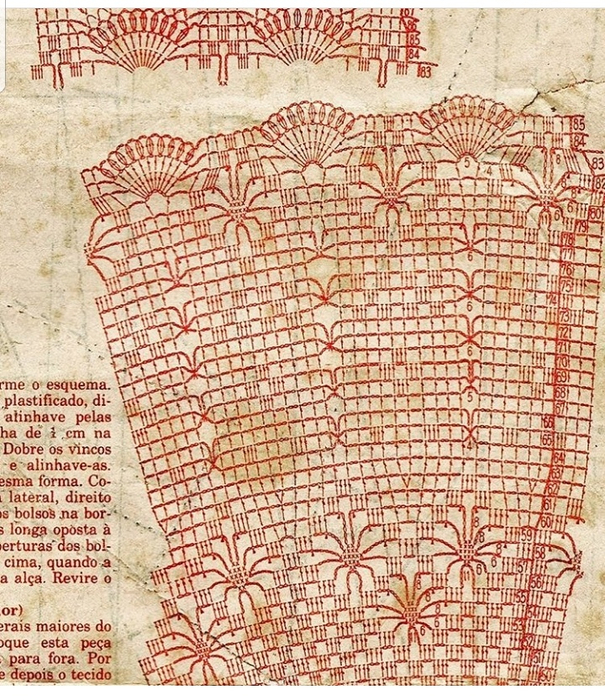 85
84
83
85
84
83
5
4
8
82
6
6
80
79
78
77
6
76
75
6
74
73
72
6
71
70
69
68
5
67
66
65
64
63
62
61
60
8
59
8
58
6
6
56
8
55
6
6
rme o esquema.
plastificado, di-
alinhave pelas
ha de ½ cm na
Dobre os vincos
e alinhave-as.
esma forma. Co-
lateral, direito
os bolsos na bor-
s longa oposta à
berturas dos bol-
cima, quando a
a alça. Revire o
or)
erais maiores do
oque esta peça
para fora. Por
e depois o tecido